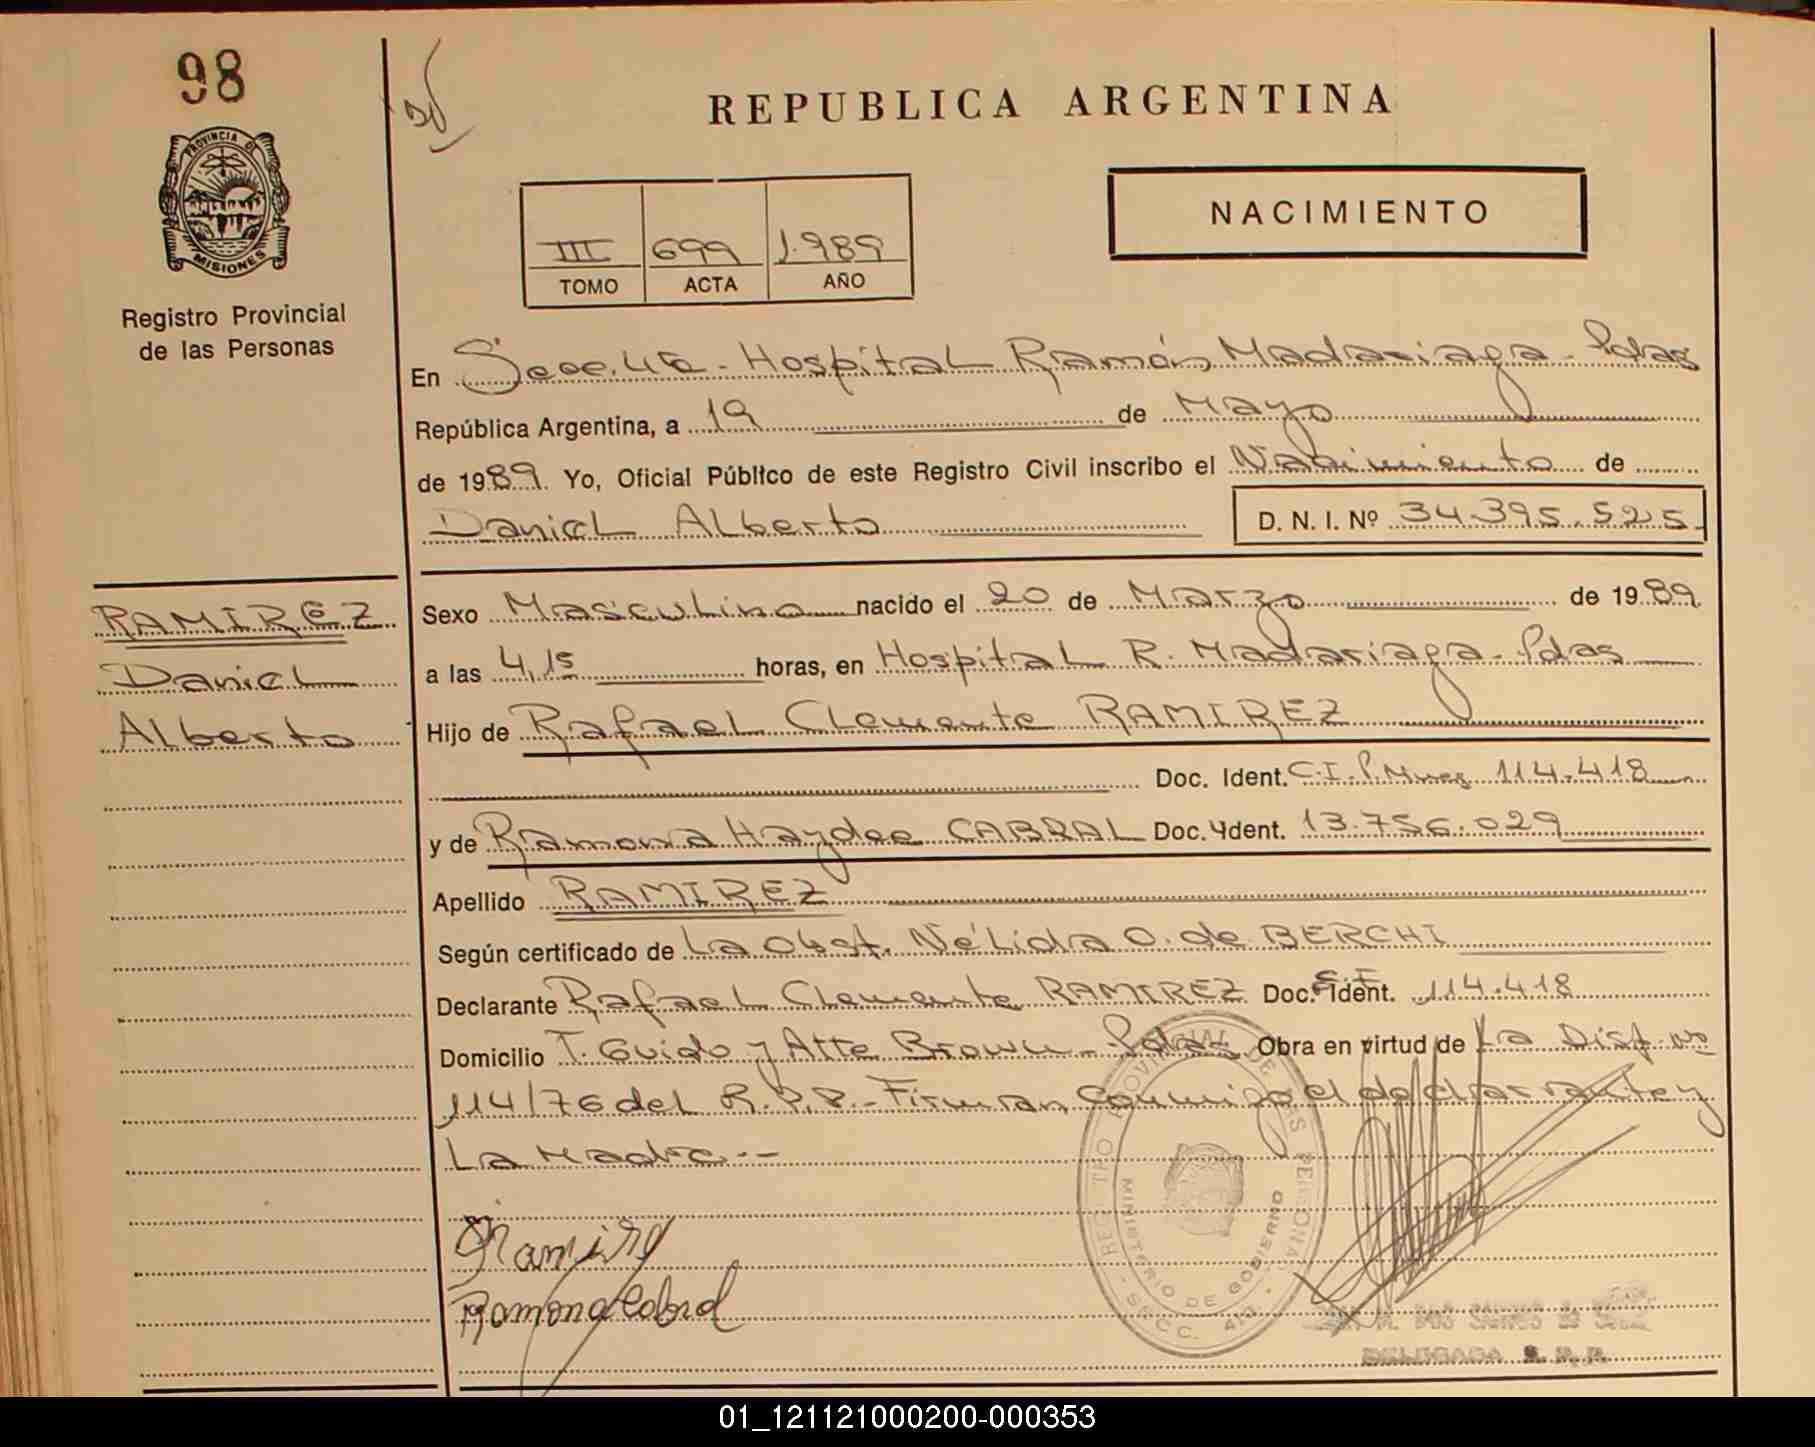 98
REPUBLICA ARGENTINA
PROVINCIA DE
MISIONES
Registro Provincial
de las Personas
NACIMIENTO
III 699 1.989
TOMO ACTA AÑO
En Secc. 4ta - Hospital Ramón Madariaga - Pdas
República Argentina, a 19 de Mayo
de 1989. Yo, Oficial Público de este Registro Civil inscribo el Nacimiento de
Daniel Alberto
D. N. I. Nº 34.395.525.
RAMIREZ
Daniel
Alberto
Sexo Masculino nacido el 20 de Marzo de 1989
a las 4,15 horas, en Hospital R. Madariaga - Pdas
Hijo de Rafael Clemente RAMIREZ
Doc. Ident. C.I.P. Mnes 114.418
y de Ramona Haydee CABRAL Doc. Ydent. 13.756.029
Apellido RAMIREZ
Según certificado de La Obst. Nélida O. de BERCHI
Declarante Rafael Clemente RAMIREZ Doc. Ident. C.I. 114.418
Domicilio T. Guido y Atte Brown - Pdas Obra en virtud de La Disp. nº
114/76 del R.P.P. - Firman conmigo el declarante y
La Madre --
Ramirez
Ramona Cabral
REGISTRO PROVINCIAL DE LAS PERSONAS
MINISTERIO DE GOBIERNO
- SECC. 4ta -
DELEGADA R. P. P.
01_121121000200-000353